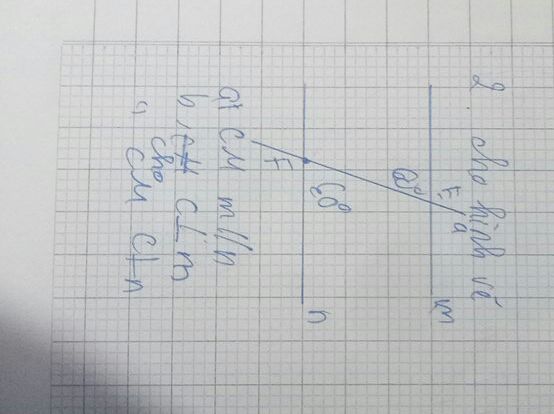 2. cho hình vẽ
a
E
m
60°
n
F
a, CM m//n
b, cho c⊥m
CM c⊥n